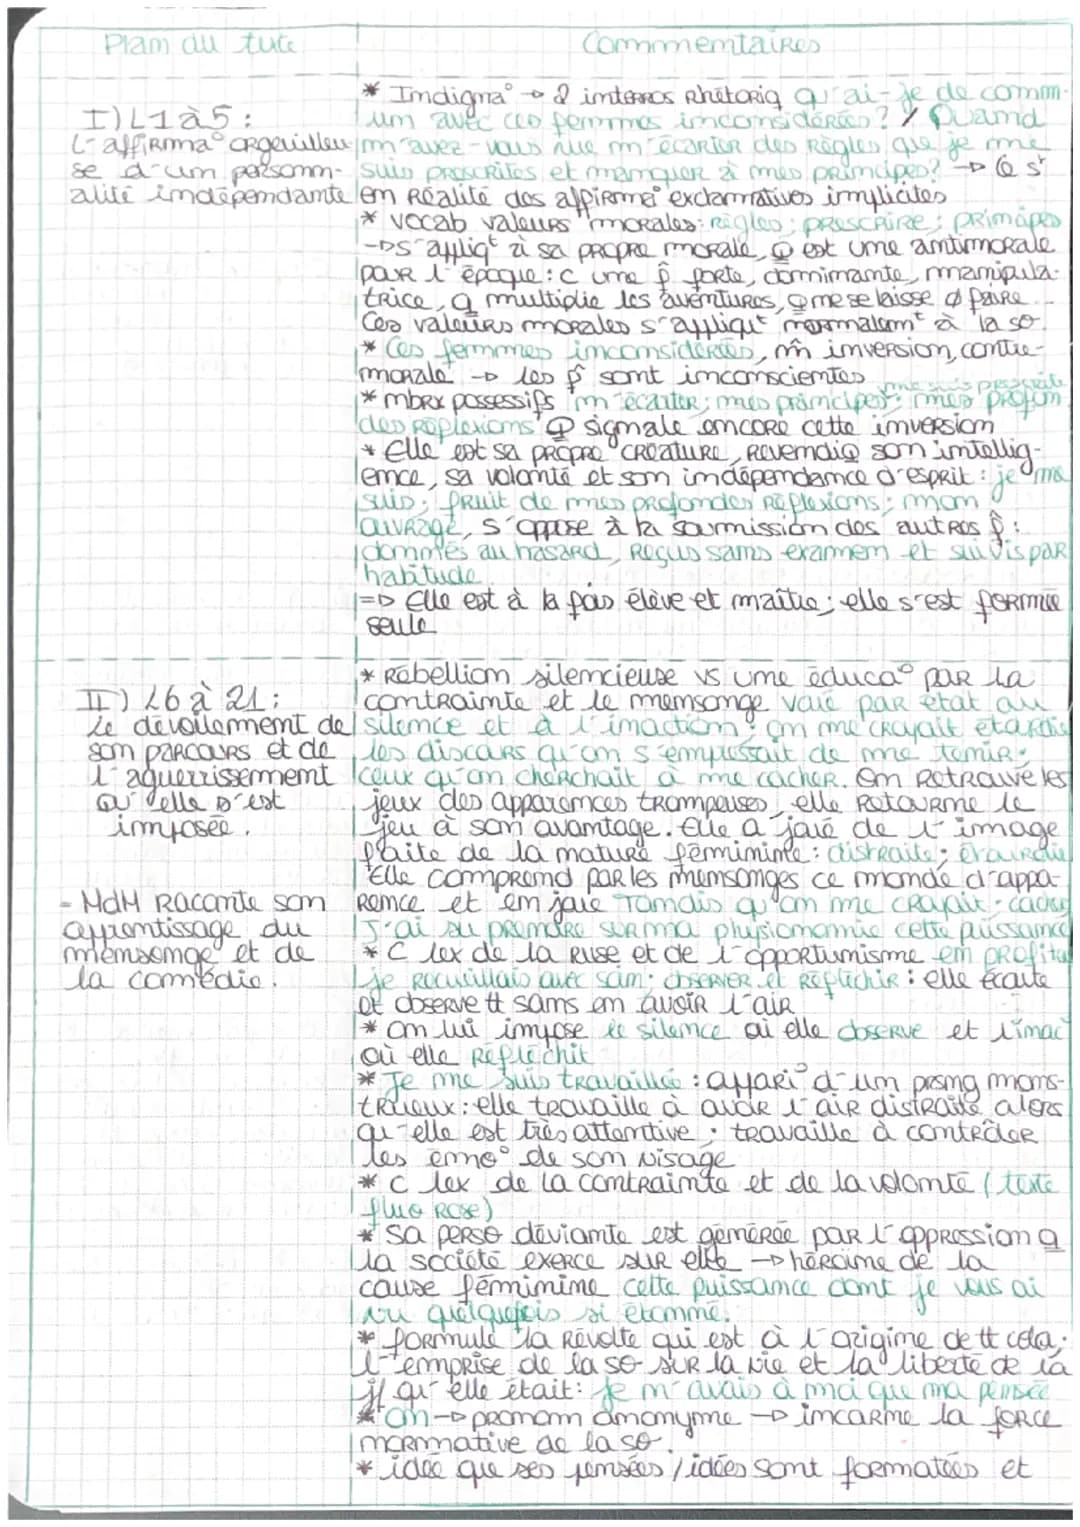 Plan du texte
Commentaires
I) L1 à 5 :
L'affirma° orgueilleu
se d'un personn-
alité indépendante
* Indigna° → 2 interros rhétoriq qu'ai-je de comm-
un avec ces femmes inconsidérées ? / Quand
m'avez-vous vue m'écarter des règles que je me
suis prescrites et manquer à mes principes ? → Ce st
en réalité des affirma° exclammatives implicites
* vocab valeurs morales : règles ; prescrire ; principes
→ s'appliqt à sa propre morale, q est une antimorale
pour l'époque : c une f forte, dominante, manipula-
trice, q multiplie les aventures, q ne se laisse ø faire...
Ces valeurs morales s'appliqt normalemt à la so.
* Ces femmes inconsidérées, m̂ inversion, contre-
morale → les f sont inconscientes
* nbrx possessifs m'écarter ; mes principes ; me suis prescrite ; mes profon
des réflexions q signale encore cette inversion
* Elle est sa propre créature, revendiq son intellig-
ence, sa volonté et son indépendance d'esprit : je me
suis ; fruit de mes profondes réflexions ; mon
ouvrage, s'oppose à la soumission des autres f :
donnés au hasard, reçus sans examen et suivis par
habitude
=> Elle est à la fois élève et maître ; elle s'est formée
seule
II) L6 à 21 :
Le dévoilement de
son parcours et de
l'aguerrissement
qu'elle s'est
imposée.
- MdM raconte son
apprentissage du
mensonge et de
la comédie.
* Rébellion silencieuse vs une éduca° par la
contrainte et le mensonge vaié par état au
silence et à l'inaction ; on me croyait étourdie
les discours qu'on s'empressait de me tenir ;
ceux qu'on cherchait à me cacher. On retrouve les
jeux des apparences trompeuses, elle retourne le
jeu à son avantage. Elle a joué de l'image
faite de la nature féminine : distraite ; étourdie
Elle comprend par les mensonges ce monde d'appa-
rence et en joue Tandis qu'on me croyait ;
J'ai su prendre sur ma physionomie cette puissance
* C lex de la ruse et de l'opportunisme en profiter
je recueillais avec soin ; observer et réfléchir : elle écoute
et observe tt sans en avoir l'air
* On lui impose le silence où elle observe et l'inac°
où elle réfléchit
* Je me suis travaillée : appari° d'un prsng mons-
trueux : elle travaille à avoir l'air distraite alors
qu'elle est très attentive ; travaille à contrôler
les émo° de son visage
* C lex de la contrainte et de la volonté (texte
fluo rose)
* Sa perso déviante est générée par l'oppression q
la société exerce sur elle → héroïne de la
cause féminine cette puissance dont je vous ai
vu quelquefois si étonné.
* formule la révolte qui est à l'origine de tt cela ;
l'emprise de la so sur la vie et la liberté de la
jf qu'elle était : je n'avais à moi que ma pensée
* On → pronom anonyme → incarne la force
normative de la so.
* idée que ses pensées / idées sont formatées et